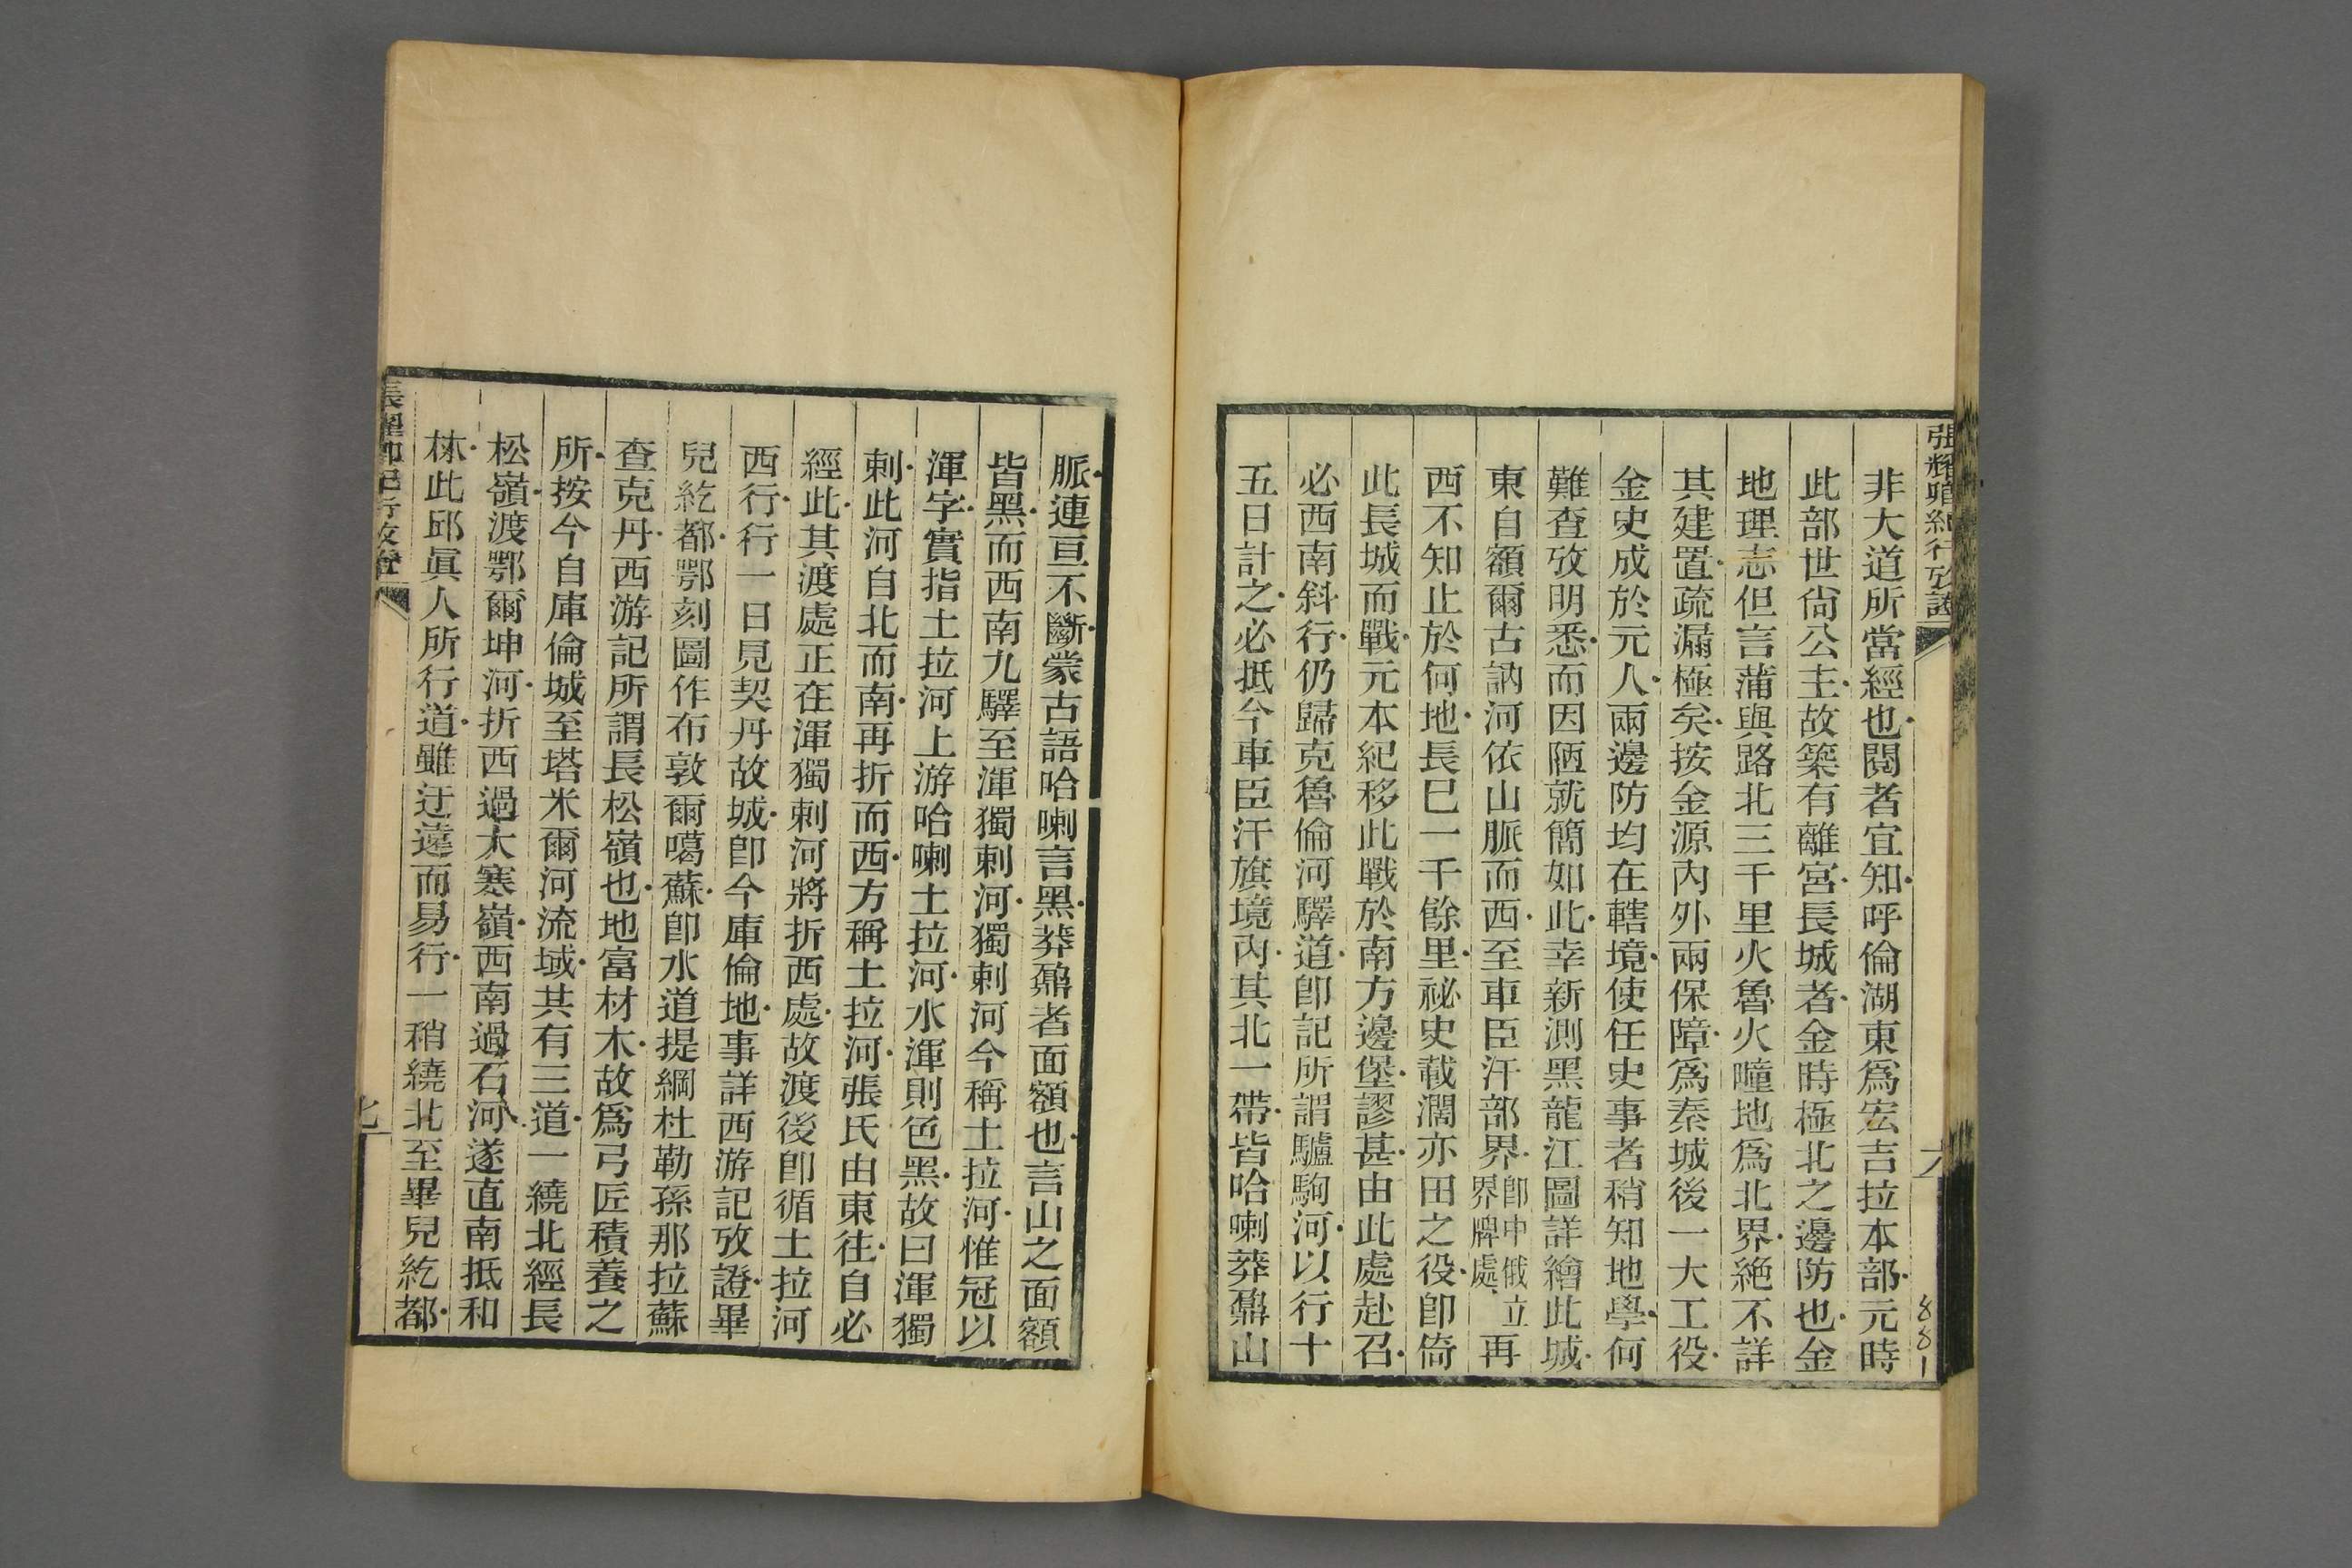 張耀卿紀行攷證
六
881
非大道所當經也閱者宜知呼倫湖東爲宏吉拉本部元時
此部世尙公主故築有離宮長城者金時極北之邊防也金
地理志但言蒲與路北三千里火魯火疃地爲北界絶不詳
其建置疏漏極矣按金源內外兩保障爲秦城後一大工役
金史成於元人兩邊防均在轄境使任史事者稍知地學何
難查攷明悉而因陋就簡如此幸新測黑龍江圖詳繪此城
東自額爾古訥河依山脈而西至車臣汗部界卽中俄立界牌處再
西不知止於何地長巳一千餘里祕史載濶亦田之役卽倚
此長城而戰元本紀移此戰於南方邊堡謬甚由此處赴召
必西南斜行仍歸克魯倫河驛道卽記所謂驢駒河以行十
五日計之必抵今車臣汗旗境內其北一帶皆哈喇莽鼐山
脈連亘不斷蒙古語哈喇言黑莽鼐者面額也言山之面額
皆黑而西南九驛至渾獨剌河獨剌河今稱土拉河惟冠以
渾字實指土拉河上游哈喇土拉河水渾則色黑故曰渾獨
剌此河自北而南再折而西方稱土拉河張氏由東往自必
經此其渡處正在渾獨剌河將折西處故渡後卽循土拉河
西行行一日見契丹故城卽今庫倫地事詳西游記攷證畢
兒紇都鄂刻圖作布敦爾噶蘇卽水道提綱杜勒孫那拉蘇
查克丹西游記所謂長松嶺也地富材木故爲弓匠積養之
所按今自庫倫城至塔米爾河流域其有三道一繞北經長
松嶺渡鄂爾坤河折西過大寒嶺西南過石河遂直南抵和
林此邱眞人所行道雖迂遠而易行一稍繞北至畢兒紇都
張耀卿紀行攷證
七